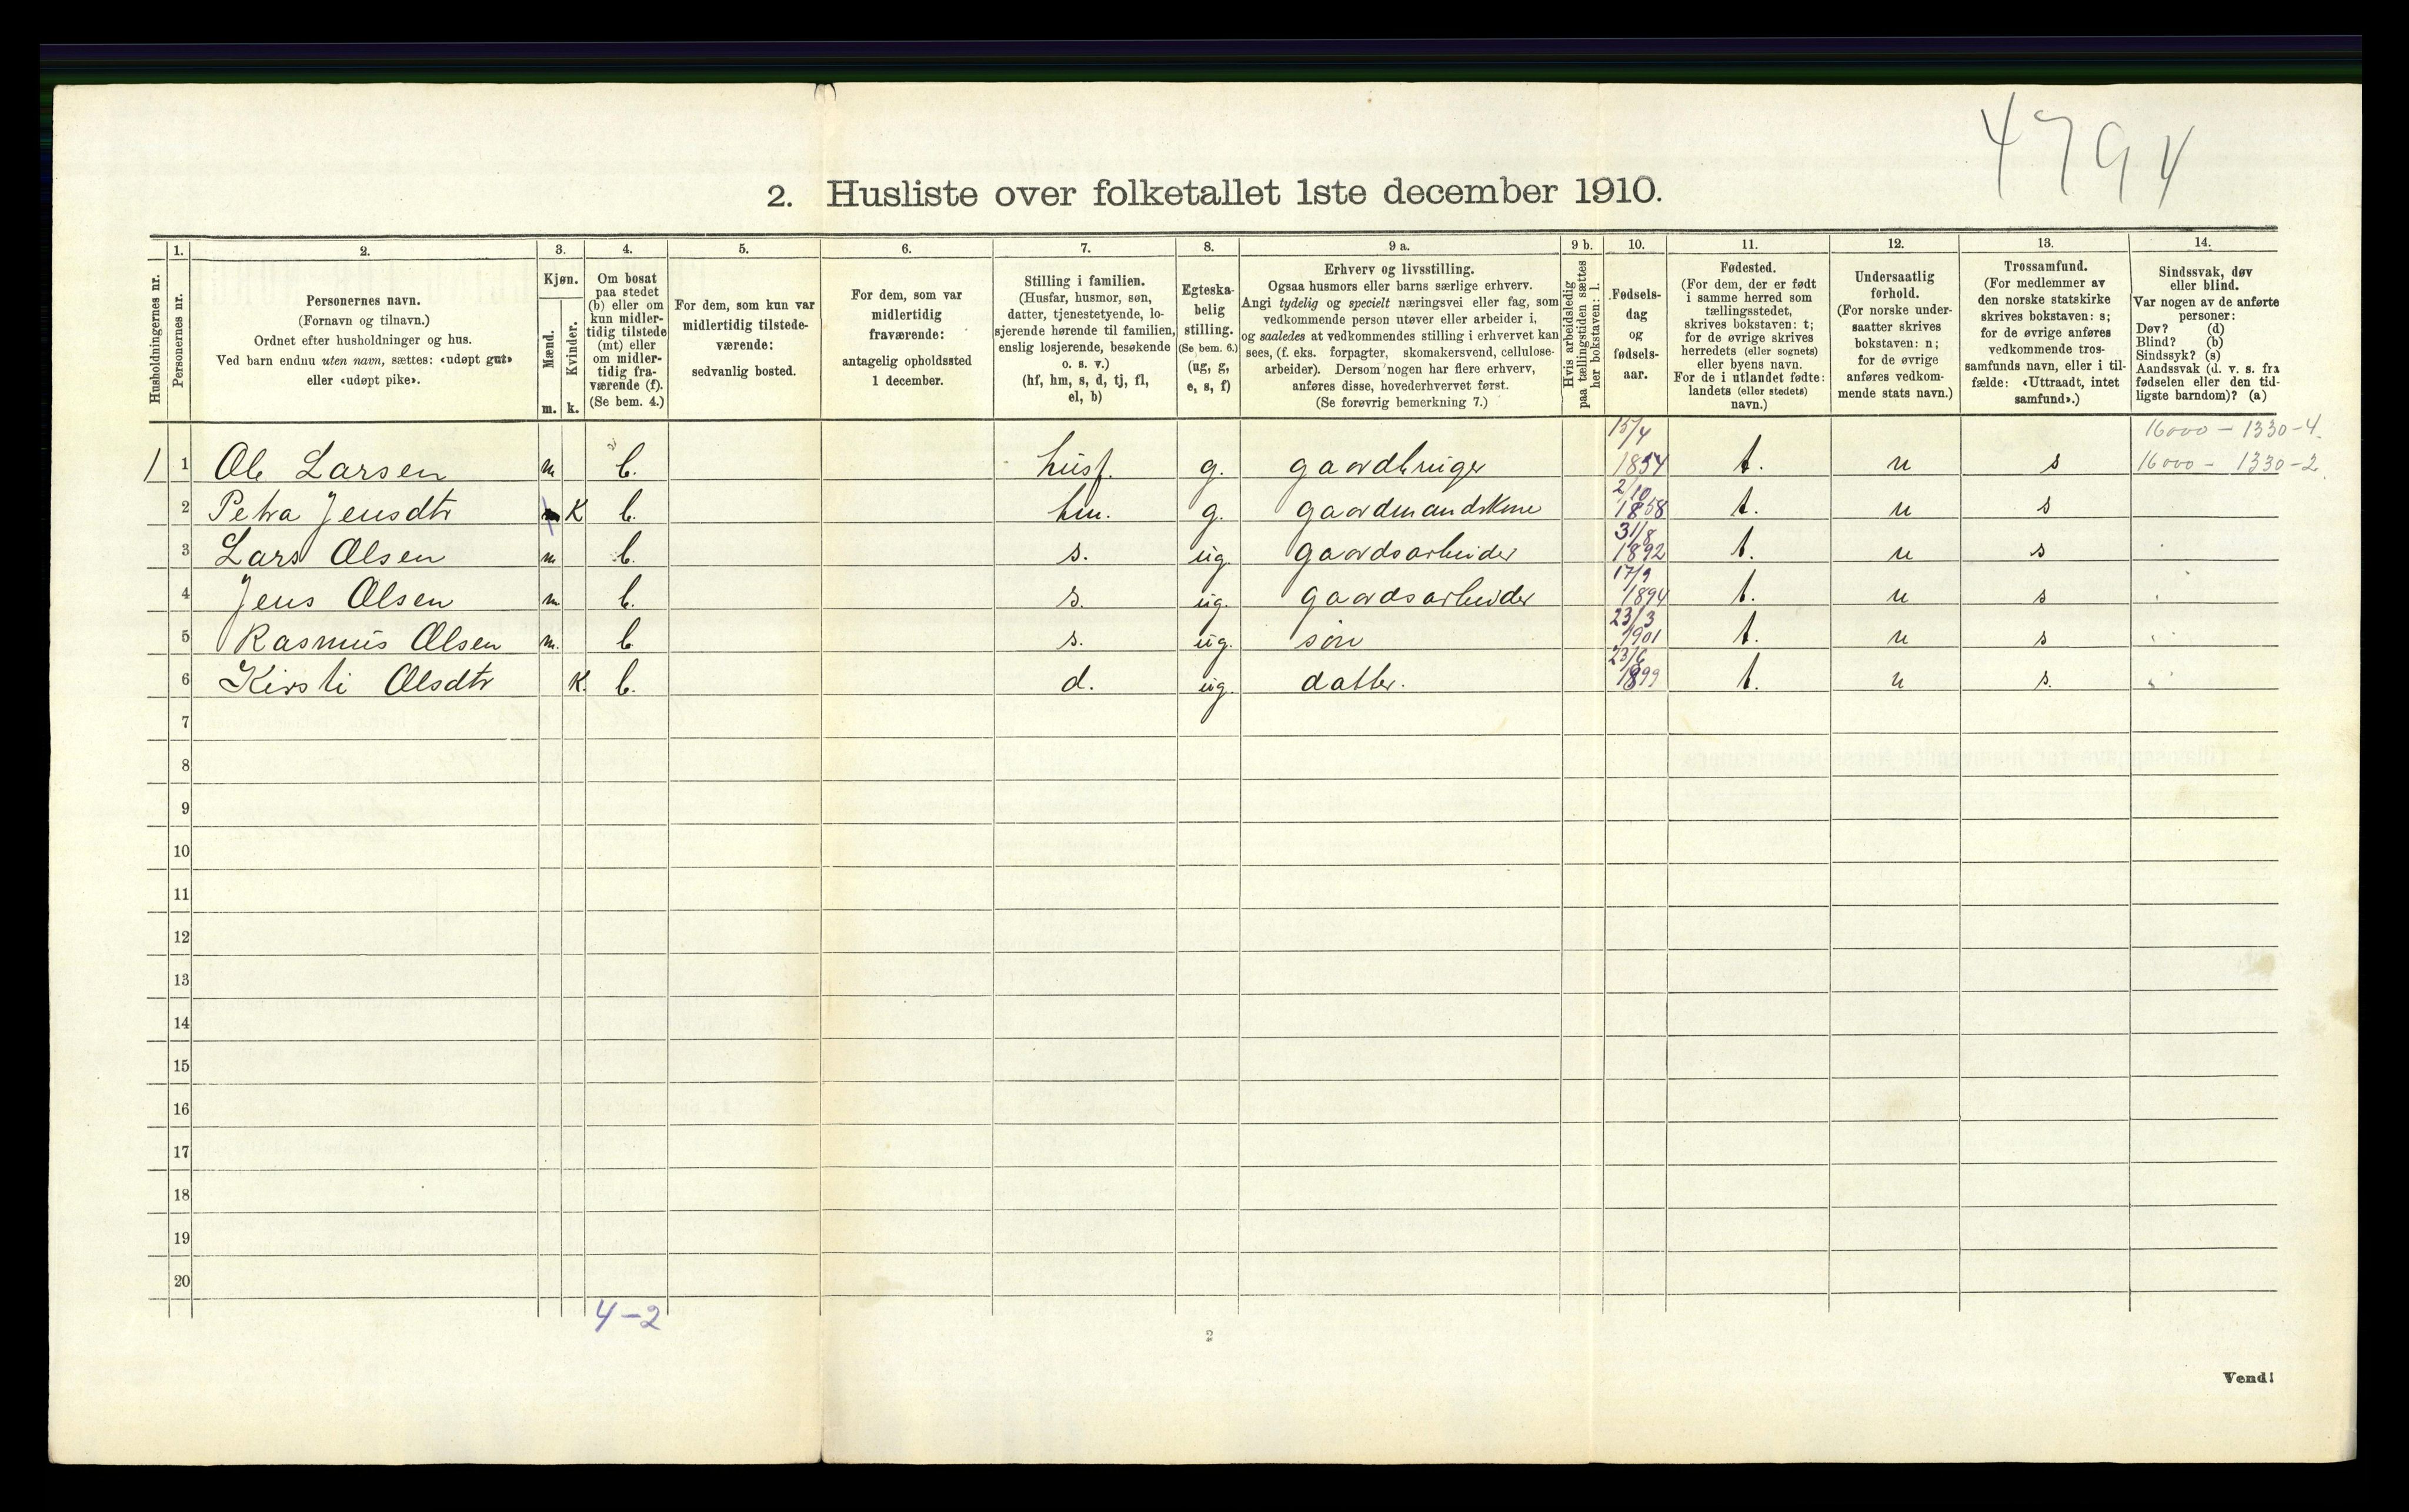 4794
2. Husliste over folketallet 1ste december 1910.
1. 2. 3. 4. 5. 6. 7. 8. 9 a. 9 b. 10. 11. 12. 13. 14.
Husholdningernes nr.
Personernes nr.
Personernes navn.
(Fornavn og tilnavn.)
Ordnet efter husholdninger og hus.
Ved barn endnu uten navn, sættes: «udøpt gut»
eller «udøpt pike».
Kjøn.
Mænd.
Kvinder.
m. k.
Om bosat
paa stedet
(b) eller om
kun midler-
tidig tilstede
(mt) eller
om midler-
tidig fra-
værende (f).
(Se bem. 4.)
For dem, som kun var
midlertidig tilstede-
værende:
sedvanlig bosted.
For dem, som var
midlertidig
fraværende:
antagelig opholdssted
1 december.
Stilling i familien.
(Husfar, husmor, søn,
datter, tjenestetyende, lo-
sjerende hørende til familien,
enslig losjerende, besøkende
o. s. v.)
(hf, hm, s, d, tj, fl,
el, b)
Egteska-
belig
stilling.
(Se bem. 6.)
(ug, g,
e, s, f)
Erhverv og livsstilling.
Ogsaa husmors eller barns særlige erhverv.
Angi tydelig og specielt næringsvei eller fag, som
vedkommende person utøver eller arbeider i,
og saaledes at vedkommendes stilling i erhvervet kan
sees, (f. eks. forpagter, skomakersvend, cellulose-
arbeider). Dersom nogen har flere erhverv,
anføres disse, hovederhvervet først.
(Se forøvrig bemerkning 7.)
Hvis arbeidsledig
paa tællingstiden sættes
her bokstaven: l.
Fødsels-
dag
og
fødsels-
aar.
Fødested.
(For dem, der er født
i samme herred som
tællingsstedet,
skrives bokstaven: t;
for de øvrige skrives
herredets (eller sognets)
eller byens navn.
For de i utlandet fødte:
landets (eller stedets)
navn.)
Undersaatlig
forhold.
(For norske under-
saatter skrives
bokstaven: n;
for de øvrige
anføres vedkom-
mende stats navn.)
Trossamfund.
(For medlemmer av
den norske statskirke
skrives bokstaven: s;
for de øvrige anføres
vedkommende tros-
samfunds navn, eller i til-
fælde: «Uttraadt, intet
samfund».)
Sindssvak, døv
eller blind.
Var nogen av de anførte
personer:
Døv? (d)
Blind? (b)
Sindssyk? (s)
Aandssvak (d. v. s. fra
fødselen eller den tid-
ligste barndom)? (a)
15/4 16000 - 1330-4.
1 1 Ole Larsen m b. husf. g. gaardbruger 1854 t. n s 16000 - 1330-2
2/10
2 Petra Jensdtr K b. hm. g. gaardmandskone 1858 t. n s
31/8
3 Lars Olsen m b. s. ug. gaardsarbeider 1892 t. n s
17/9
4 Jens Olsen m. b. s. ug. gaardsarbeider 1894 t. n s
23/3
5 Rasmus Olsen m. b s. ug. søn 1901 t. n s
23/6
6 Kirsti Olsdtr K. b. d. ug. datter. 1899 t. n s.
7
8
9
10
11
12
13
14
15
16
17
18
19
20
4-2
2
Vend!